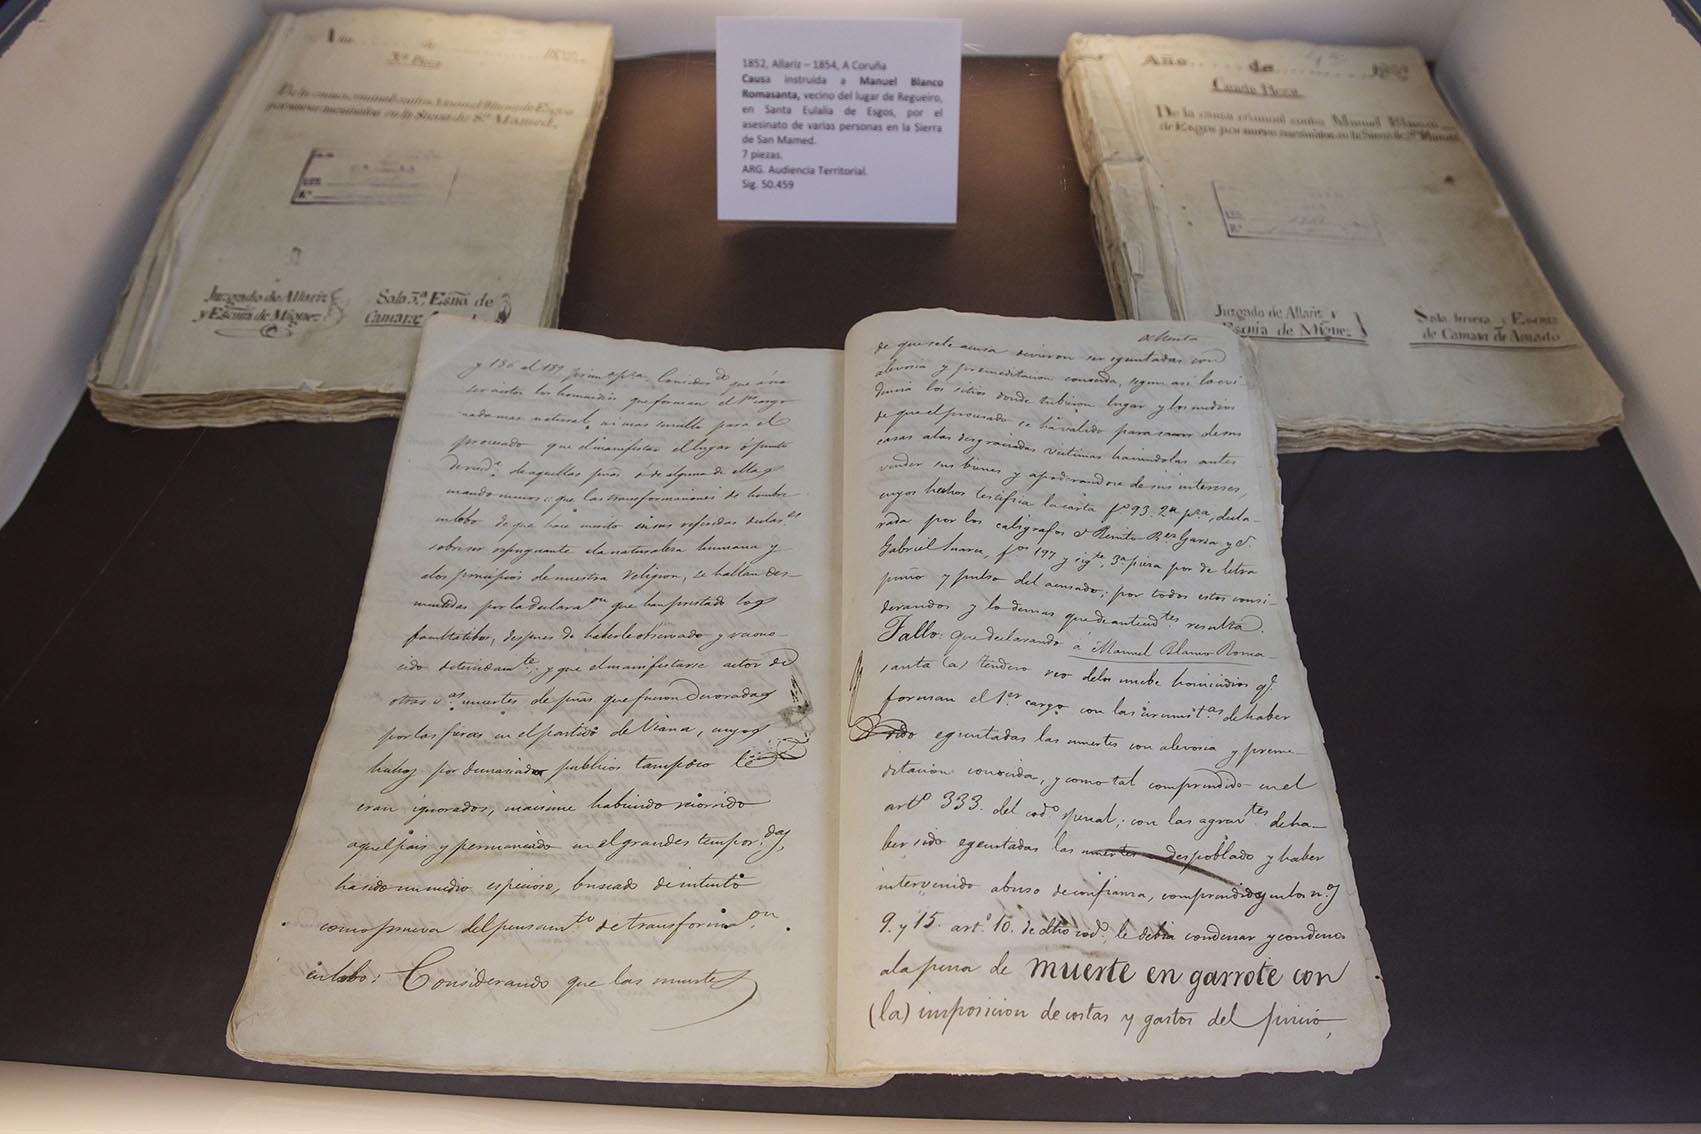 Año de
3ª Pieza
De la causa criminal contra Manuel Blanco de Esgos
por nueve asesinatos en la Sierra de Sn Mamed.
Juzgado de Allariz
y Esnia de Miguez
Sala 3ª Esnia de
Camara
1852, Allariz – 1854, A Coruña
Causa instruida a Manuel Blanco
Romasanta, vecino del lugar de Regueiro,
en Santa Eulalia de Esgos, por el
asesinato de varias personas en la Sierra
de San Mamed.
7 piezas.
ARG. Audiencia Territorial.
Sig. 50.459
Año de
Cuarta Pieza
De la causa criminal contra Manuel Blanco
de Esgos por nueve asesinatos en la Sierra de Sn Mamed
Juzgado de Allariz y
Esnia de Miguez
Sala tercera y Esnia
de Camara de Amado
y 136 al 139 Considdo que á no
ser ciertos los homicidios que forman el 1er cargo
nada mas natural, ni mas sencillo para el
procesado que el manifestar el lugar ó punto
de aquellas psnas ó de alguna de ellas
cuando menos: que las transformaciones de hombre
en lobo de que hace merito en sus referidas
sobre ser repugnante a la naturaleza humana y
a los principios de nuestra religion, se hallan des-
mentidas por la declaraon que han prestado los
facultatibos, despues de haberle observado y recono-
cido detenidamte; y que el manifestarse actor de
otras vas muertes de psnas que fueron devoradas
por las fieras en el partido de Viana, cuyos
hechos por demasiado publicos tampoco le
eran ignorados, maxime habiendo recorrido
aquel pais y permanecido en el grandes tempordas,
ha sido un medio especioso, buscado de intento
como prueva del pensamto de transformaon
en lobo: Considerando que las muertes
de que se le acusa devieron ser egecutadas con
alevosia y premeditacion conocida, segun asi lo evi-
dencia los sitios donde tubieron lugar y los medios
de que el procesado se ha valido para sacar de sus
casas a las desgraciadas victimas haciendolas antes
vender sus bienes y apoderandose de sus intereses,
cuyos hechos testifica la carta fo 93. 2ª pza, decla-
rada por los caligrafos Dn Benito Garza y Dn
Gabriel Suarez, fos 197 y sigte, 3ª pieza por de letra
puño y pulso del acusado; por todos estos consi-
derandos y lo demas que de antecedtes resulta.
Fallo: que declarando á Manuel Blanco Roma-
santa (a) tendero reo de los nuebe homicidios qe
forman el 1er cargo con las circunstas de haber
sido egecutadas las muertes con alevosia y preme-
ditacion conocida, y como tal comprendido en el
arto 333. del codo penal; con las agravtes de ha-
ber sido egecutadas las muertes despoblado y haber
intervenido abuso de confianza, comprendidas en los nos
9. y 15. arto 10. de dho codo le debia condenar y condeno
a la pena de muerte en garrote con
(la) imposicion de costas y gastos del juicio,